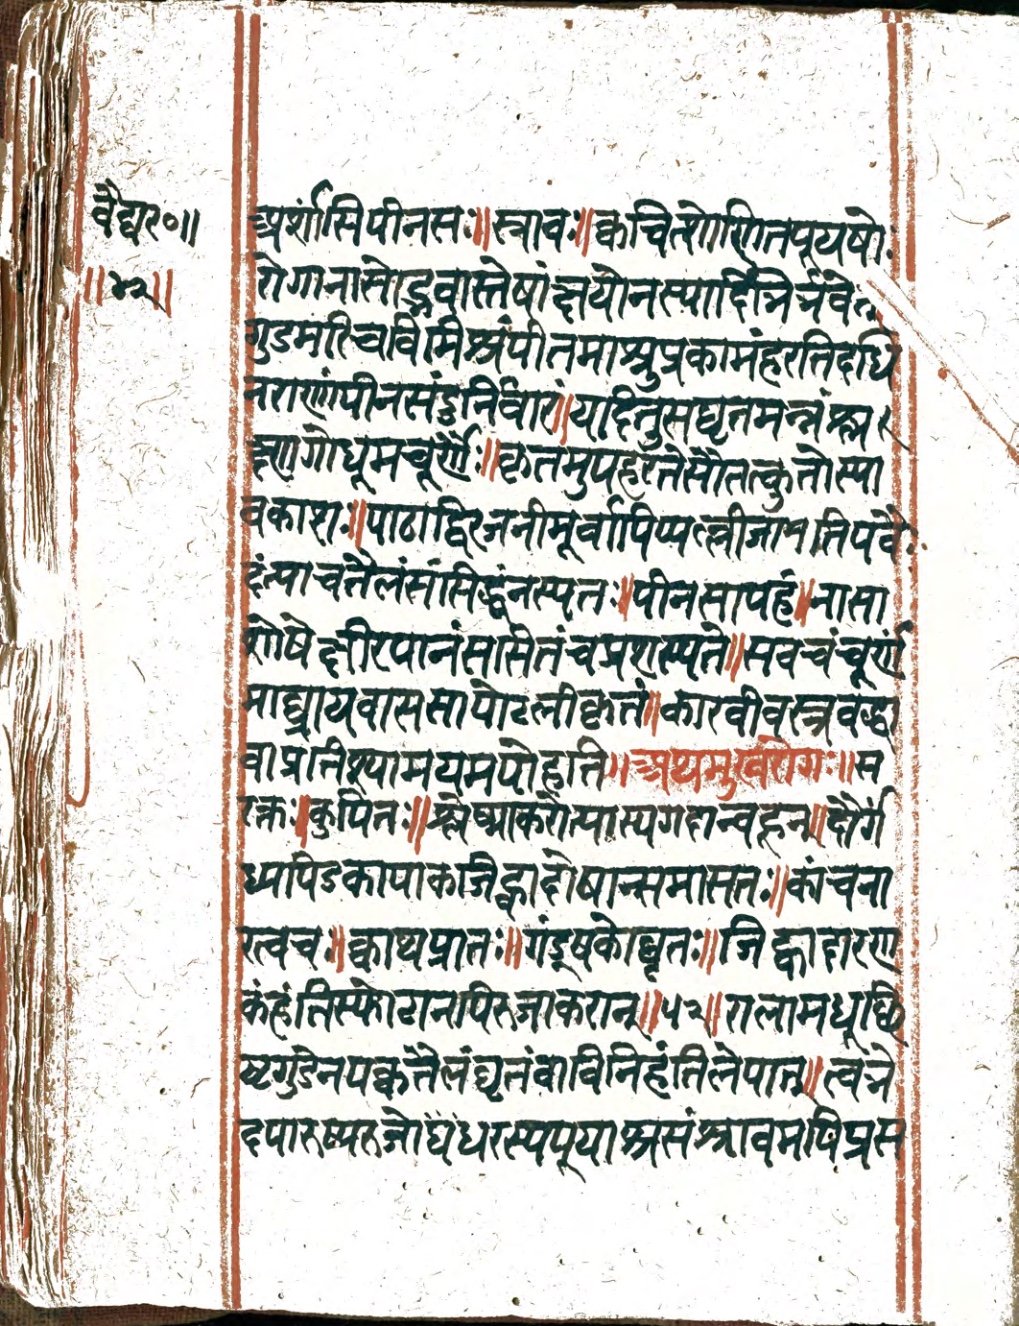 वैद्यर०॥
॥४२॥
अर्शांसिपीनसः॥स्त्रावः॥क्वचित्शोणितपूयषो
रोगानासोद्भवास्तेषांक्षयोनस्यादिभिर्भवेत्
गुडमरिचविमिश्रंपीतमाश्रुप्रकामंहरतिदधि
नराणंपीनसंडुर्निवारं॥यदितुसघृतमन्त्रंश्ल
क्ष्णगोधूमचूर्णैः॥कृतमुपहृतैसौतत्कुतोस्या
वकाशः॥पाठाद्विरजनीमूर्वापिप्पलीजातिपल्लवैः
दंत्याचतैलंसंसिद्धंनस्पतः॥पीनसापहं॥नासा
शोषेक्षीरपानंससितंचप्रशस्पते॥सवचंचूर्ण
माघ्रायवाससापोटलीकृतं॥कारवीवस्त्रवद्धा
वाप्रतिश्यामयमपोहति॥अथमुखरोगः॥स
रक्तः॥कुपितः॥श्लेष्माकरोत्यास्यगदान्वहून्॥दौर्ग
ध्यपिडकापाकजिह्वादोषान्समासतः॥कांचना
रत्वचः॥क्वाथप्रातः॥गंडूषकोद्यृतः॥जिह्वादारण
कंहंतिस्फोटानापिरुजाकरान्॥५२॥रालामधूछि
ष्टगुडेनपक्वंतैलंघृतंवाविनिहंतिलेपात्॥त्वंत्रे
दपारुष्यरुजोघैघरस्यपूयाश्रसंश्रावमपिप्रस